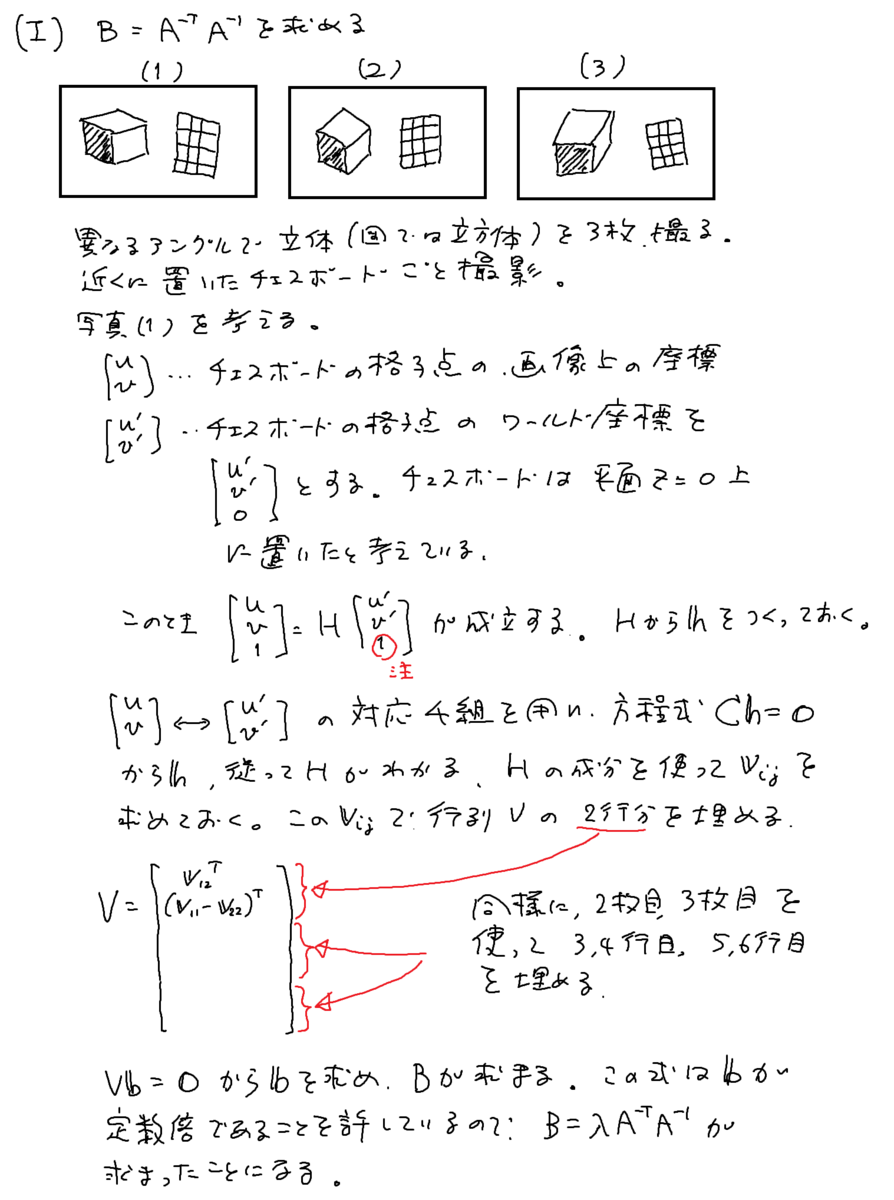 (I) B = A⁻ᵀ A⁻¹ を求める
(1) (2) (3)
異なるアングルで立体(図では立方体)を3枚撮る。
近くに置いたチェスボードごと撮影。
写真(1)を考える。
[u v] … チェスボードの格子点の画像上の座標
[u' v'] … チェスボードの格子点のワールド座標を
[u' v' 0] とする。チェスボードは平面z=0上
に置いたと考えている。
このとき [u v 1] = H [u' v' 1] が成立する。Hからhをつくっておく。
注
[u v] ↔ [u' v'] の対応4組を用い、方程式 Ch=0
からh、従ってHがわかる。Hの成分を使ってvᵢⱼを
求めておく。このvᵢⱼで行列Vの2行分を埋める。
V = [v₁₂ᵀ
(v₁₁-v₂₂)ᵀ]
同様に、2枚目、3枚目を
使って3,4行目、5,6行目
を埋める。
Vb=0からbを求め、Bが求まる。この式はbが
定数倍であることを許しているので、B=λA⁻ᵀA⁻¹が
求まったことになる。